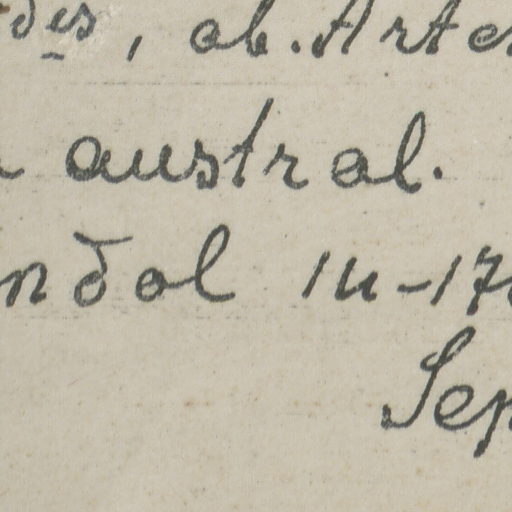 ab. Arte
austral.
ndol 14-17
Sep